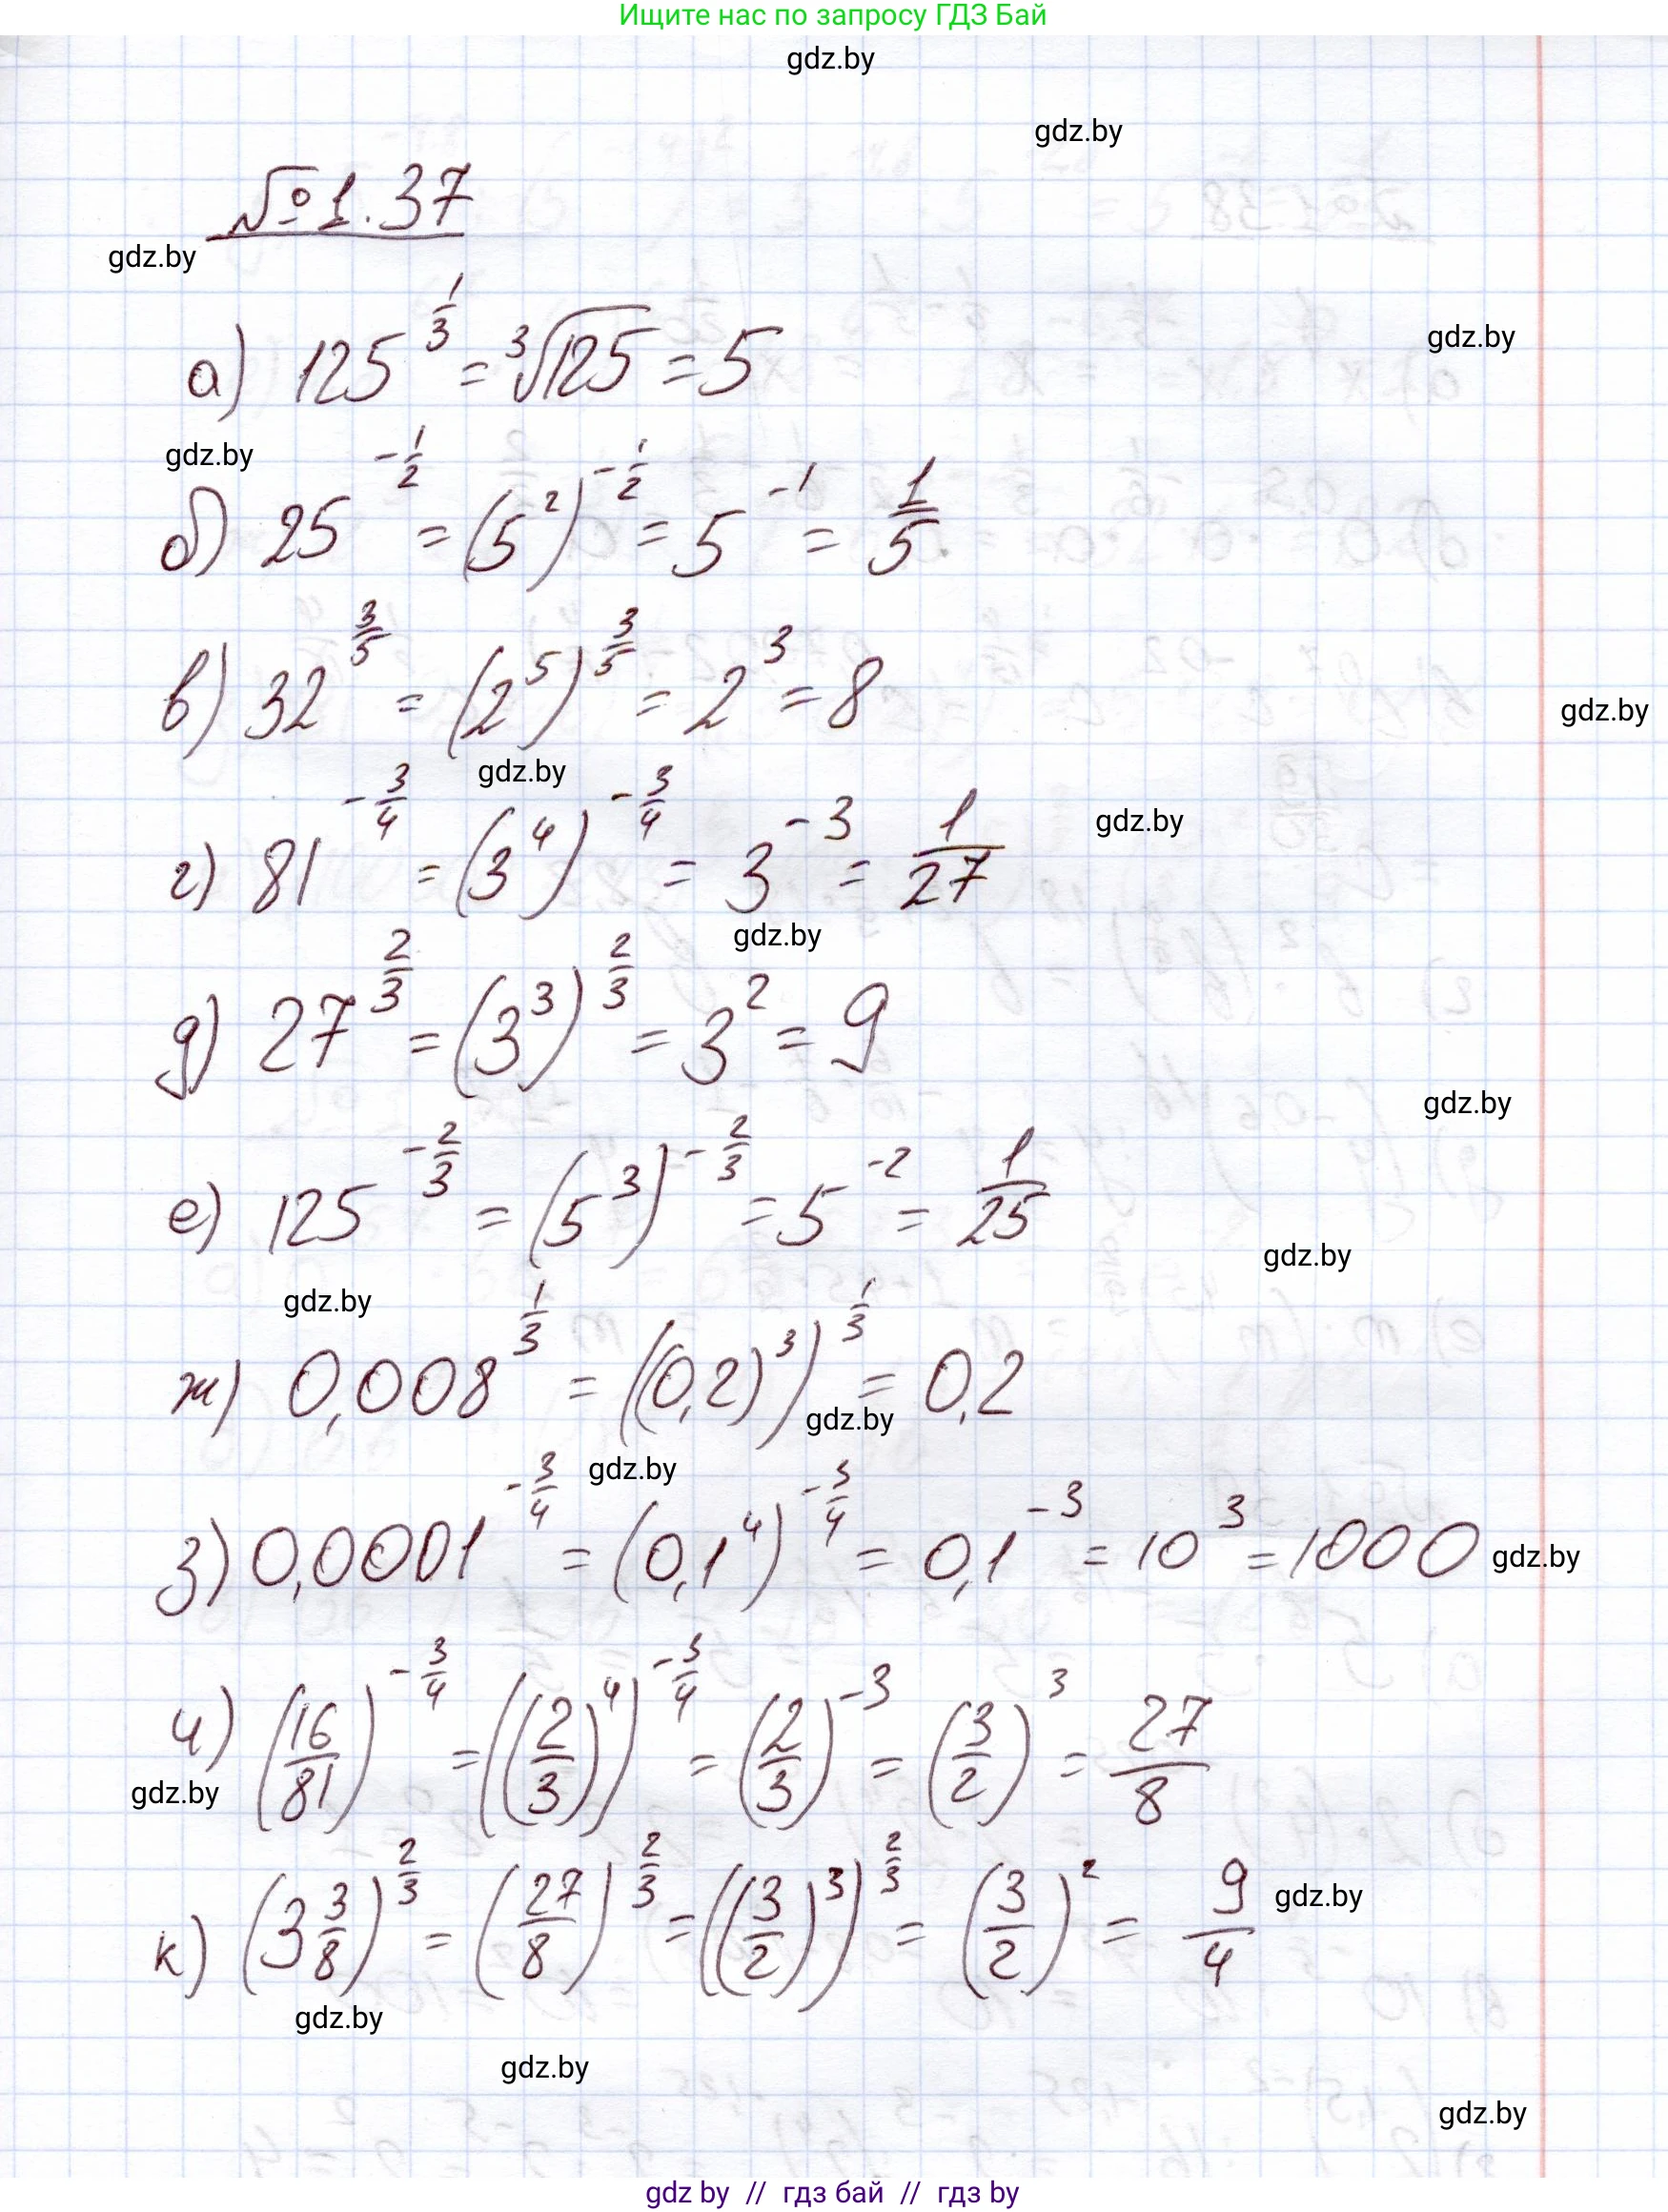 Ищите нас по запросу ГДЗ Бай
gdz.by
gdz.by
№ 1.37
gdz.by
а) 125^(1/3) = ∛125 = 5
gdz.by
gdz.by
б) 25^(-1/2) = (5^2)^(-1/2) = 5^(-1) = 1/5
в) 32^(3/5) = (2^5)^(3/5) = 2^3 = 8
gdz.by
gdz.by
gdz.by
г) 81^(-3/4) = (3^4)^(-3/4) = 3^(-3) = 1/27
gdz.by
д) 27^(2/3) = (3^3)^(2/3) = 3^2 = 9
gdz.by
е) 125^(-2/3) = (5^3)^(-2/3) = 5^(-2) = 1/25
gdz.by
gdz.by
ж) 0,008^(1/3) = ((0,2)^3)^(1/3) = 0,2
gdz.by
gdz.by
з) 0,0001^(-3/4) = (0,1^4)^(-3/4) = 0,1^(-3) = 10^3 = 1000
gdz.by
и) (16/81)^(-3/4) = ((2/3)^4)^(-3/4) = (2/3)^(-3) = (3/2)^3 = 27/8
gdz.by
к) (3 3/8)^(2/3) = (27/8)^(2/3) = ((3/2)^3)^(2/3) = (3/2)^2 = 9/4
gdz.by
gdz.by
gdz.by
gdz.by
gdz by // гдз бай // гдз by